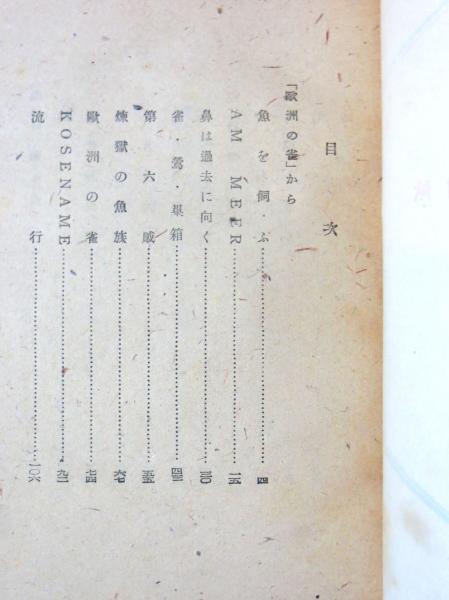 目次
「歐洲の雀」から
魚を飼ふ……四
AM MEER……一五
鼻は過去に向く……三〇
雀・鶯・巣箱
第六感……五五
煉獄の魚族……六七
歐洲の雀……七四
KOSENAME……九一
流行